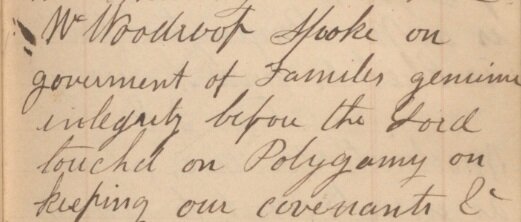 W Woodroof Spoke on
goverment of Familes genuine
integrety before the Lord
touchd on Polygamy on
keeping our covenants &c